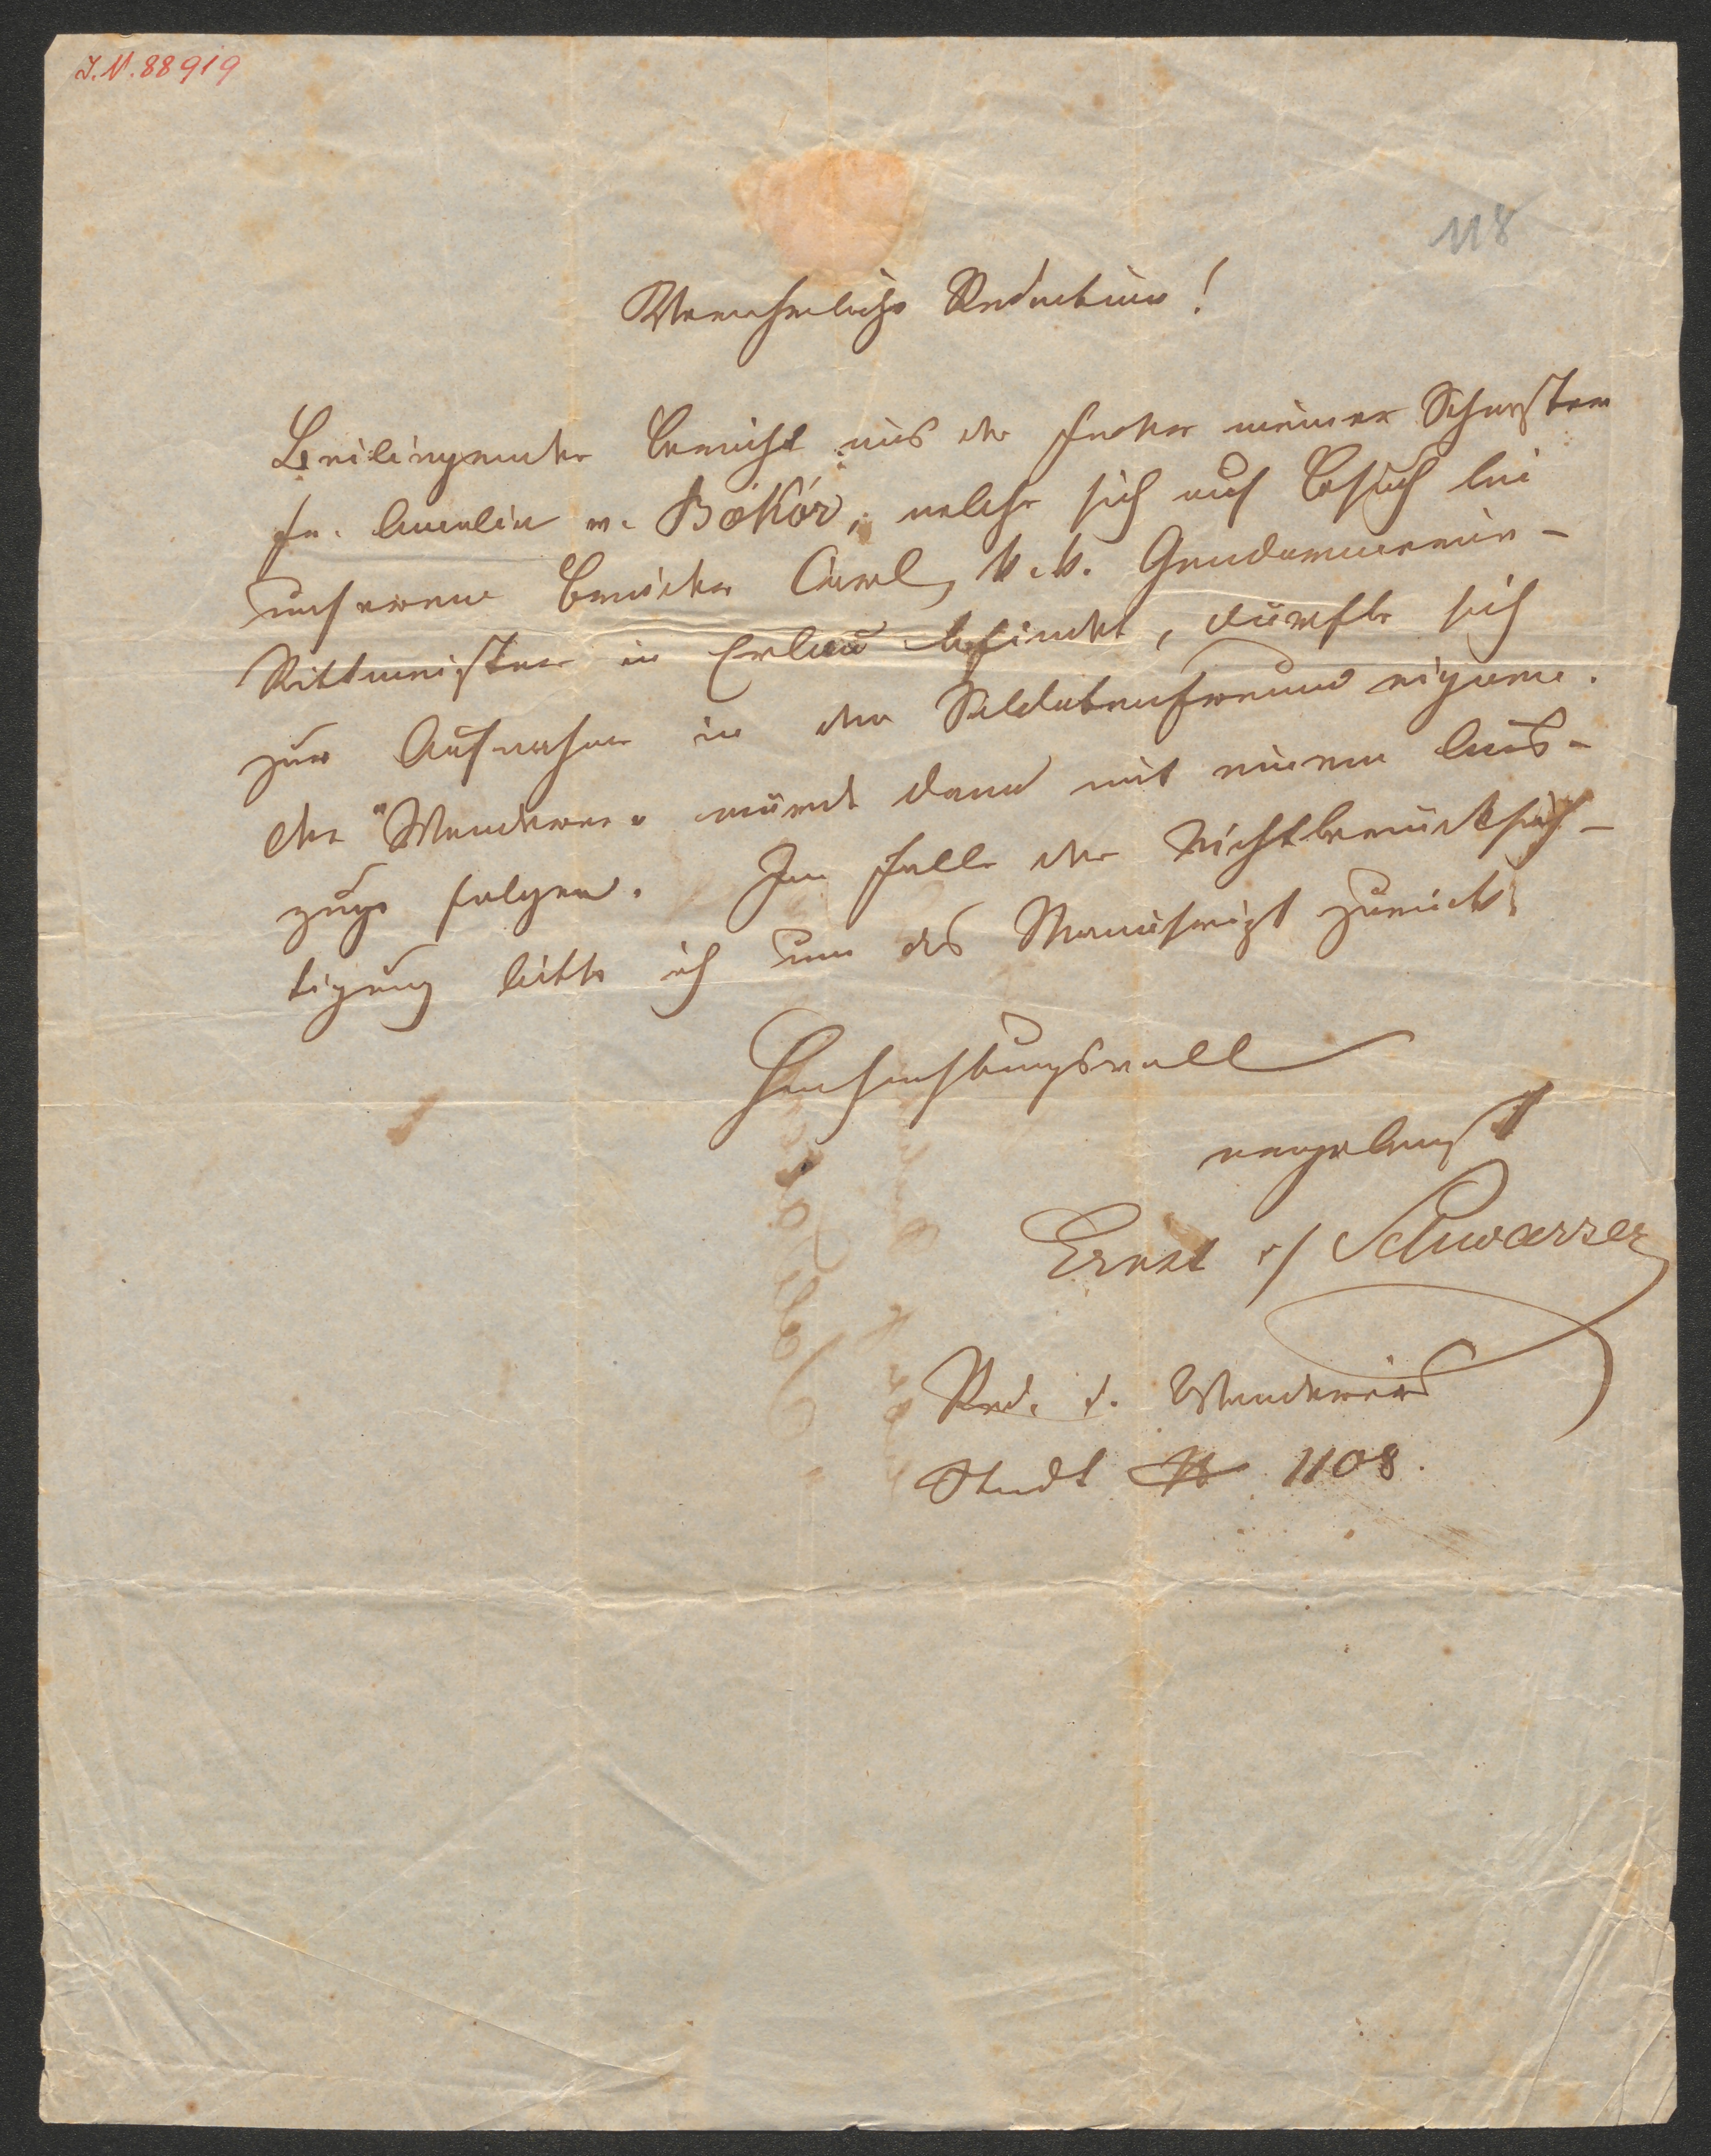 I.N. 88919
118
Verehrliche Redaction!
Beiliegender Bericht aus der Feder meiner Schwester
Fr. Amalie v. Bökör, welche sich auf Besuch bei
unserem Bruder Carl, k. k. Gendarmerie-
Rittmeister in Erlau befindet, dürfte sich
zur Aufnahme in den Soldatenfreund eignen.
Der "Wanderer" würde dann mit einem Aus-
zuge folgen. Im Falle der Nichtberücksich-
tigung bitte ich um das Manuscript zurück.
Hochachtungsvoll
ergebenst
Ernst v Schwarzer
Red. d. Wanderers
Stadt № 1108.